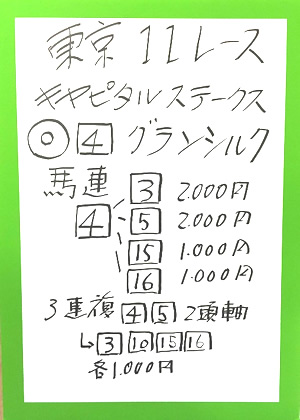 東京 11レース
キャピタルステークス
◎ 4 グランシルク
馬連
4
3 2.000円
5 2.000円
15 1.000円
16 1.000円
3連複 4 5 2頭軸
↳ 3 10 15 16
各1.000円